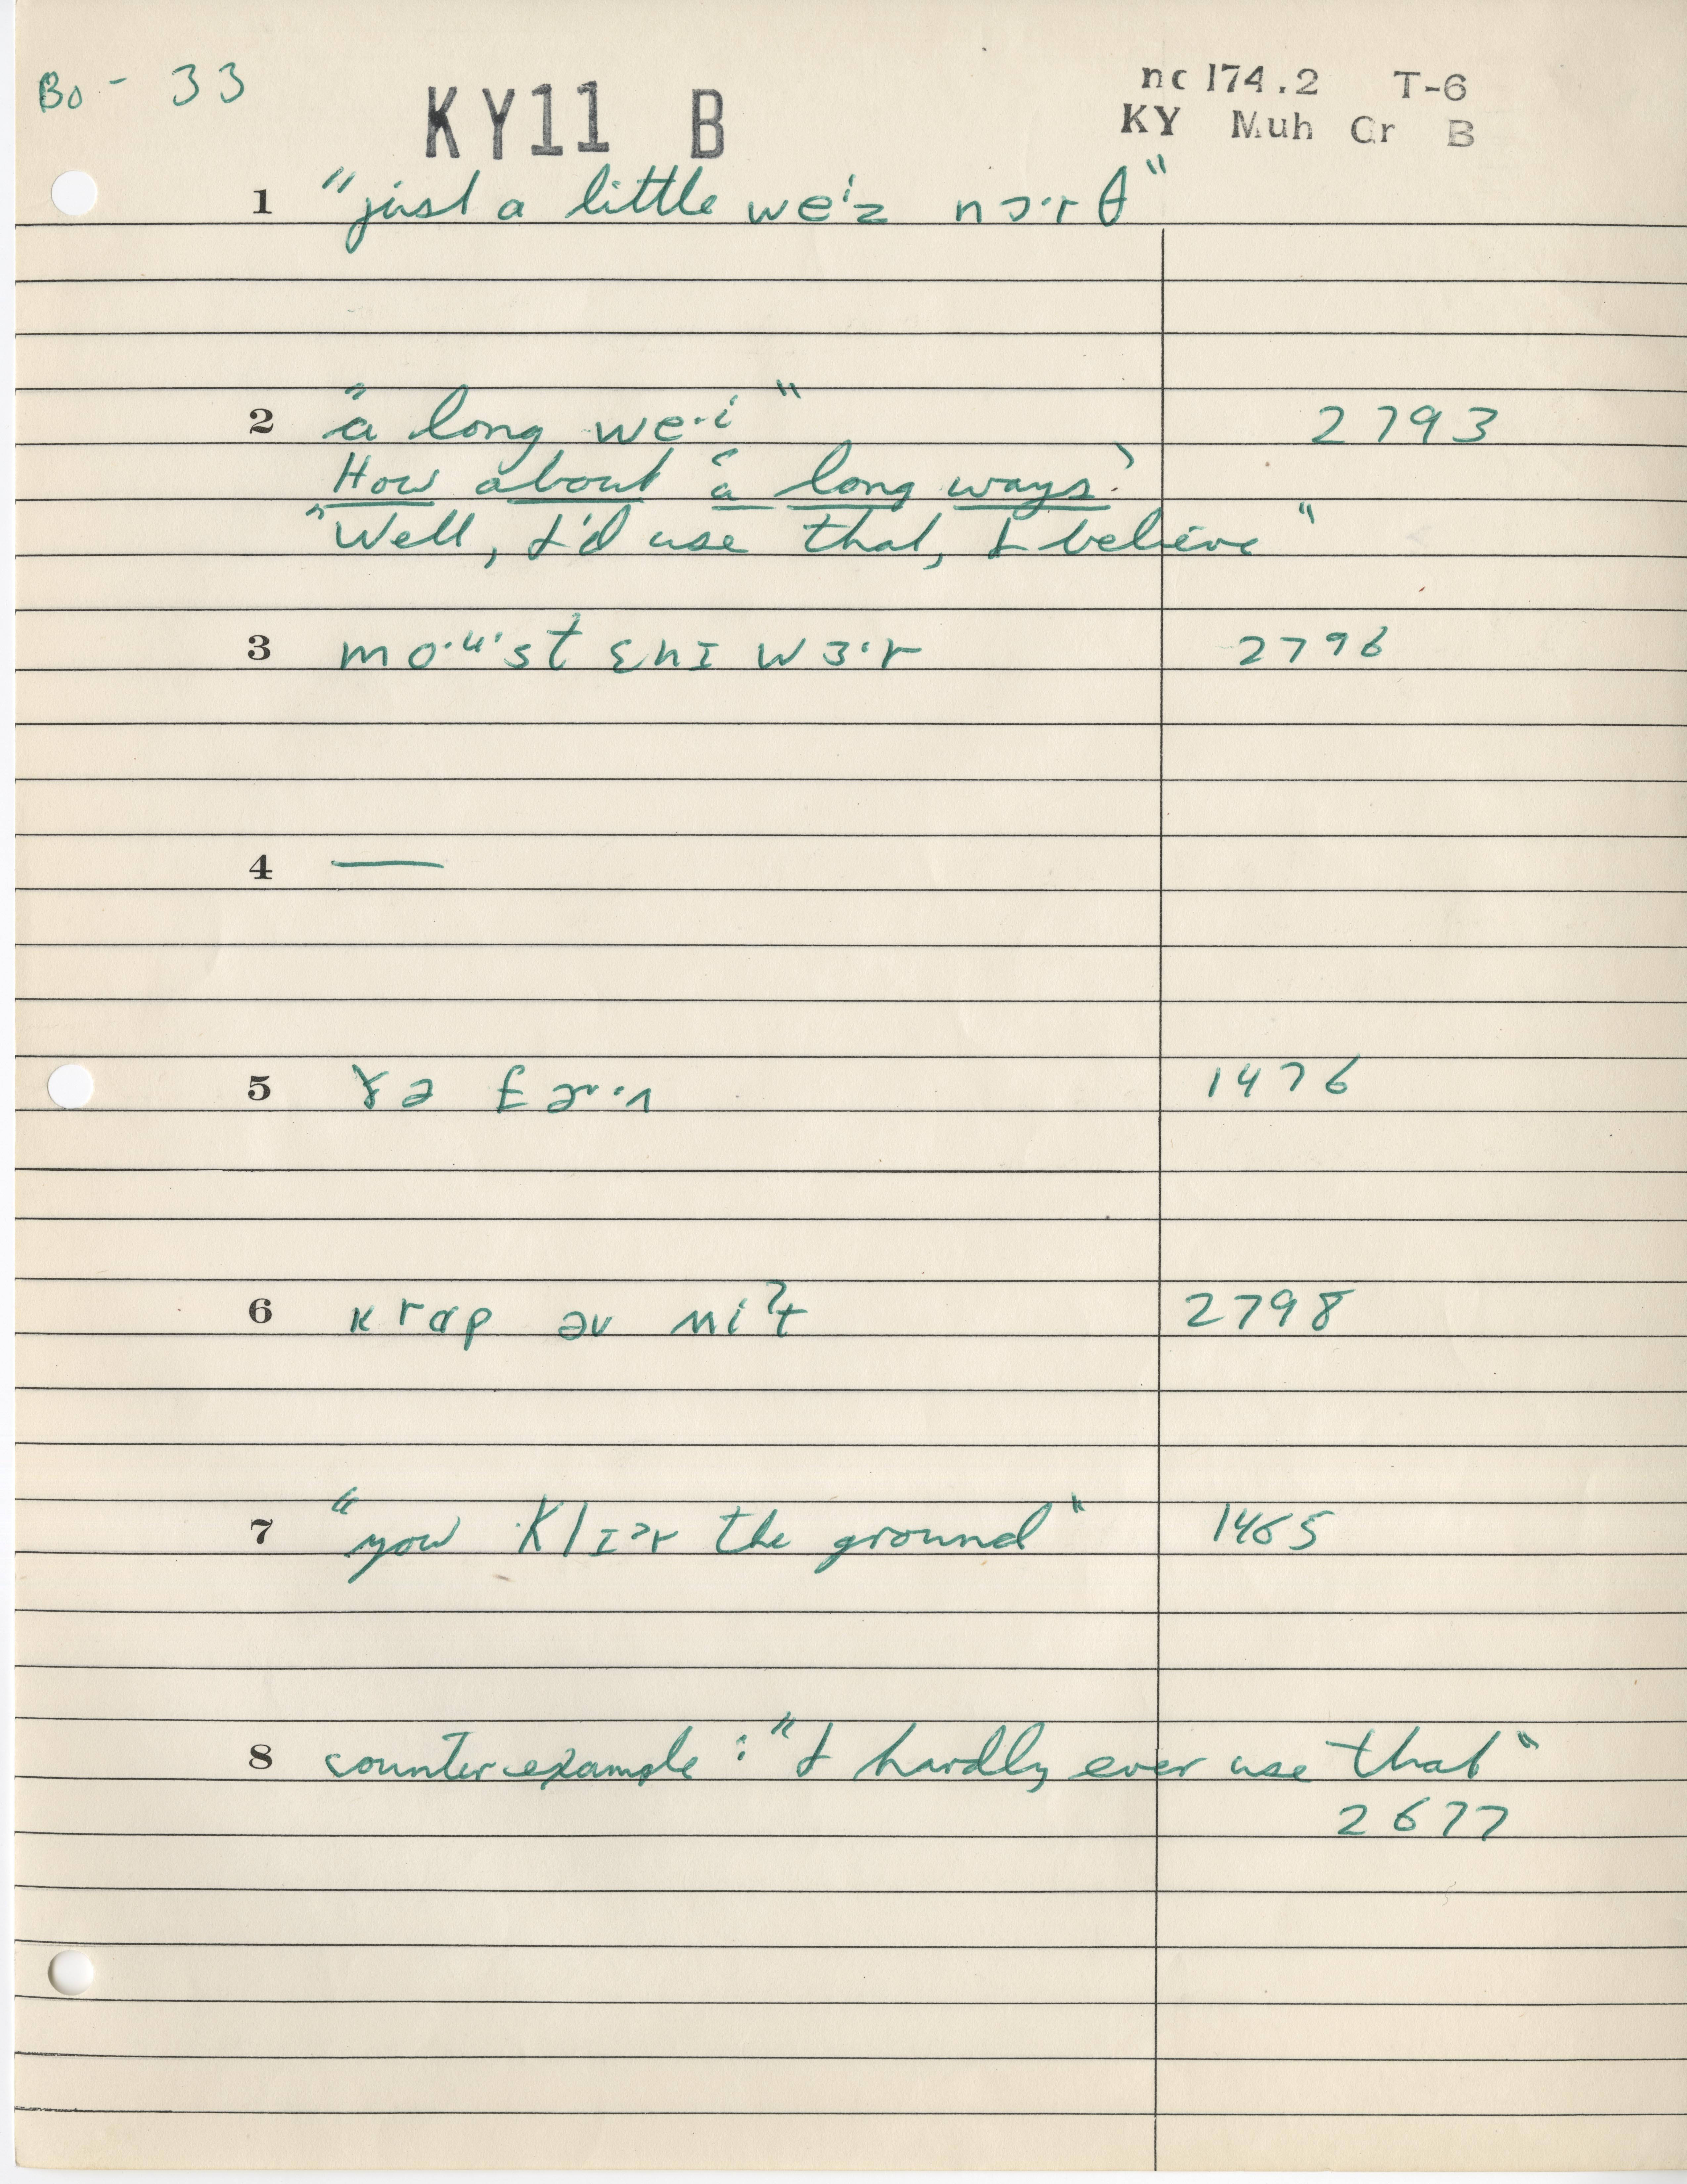 Bo - 33
KY11 B
nc 174.2 T-6
KY Muh Gr B
1 "just a little weⁱz nɔ·rθ"
2 "a long we·ⁱ" 2793
How about 'a long ways'
"Well, I'd use that, I believe"
3 mo·ᵘst ɛnɪ wɜ·r 2796
4 —
5 1476
6 krap əv 2798
7 "you klɪər the ground" 1465
8 counterexample: "I hardly ever use that"
2677